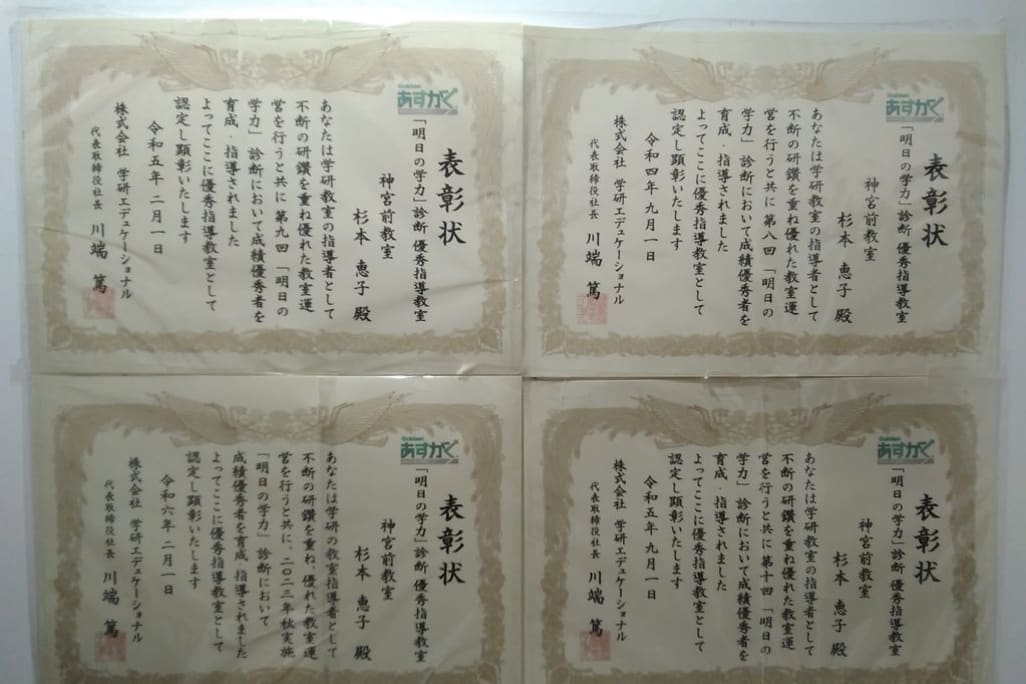 Gakken
あすがく
表彰状
「明日の学力」診断 優秀指導教室
神宮前教室
杉本 恵子 殿
あなたは学研教室の指導者として
不断の研鑽を重ね優れた教室運
営を行うと共に第八回「明日の
学力」診断において成績優秀者を
育成・指導されました
よってここに優秀指導教室として
認定し顕彰いたします
令和四年 九月一日
株式会社 学研エデュケーショナル
代表取締役社長 川端 篤
Gakken
あすがく
表彰状
「明日の学力」診断 優秀指導教室
神宮前教室
杉本 恵子 殿
あなたは学研教室の指導者として
不断の研鑽を重ね優れた教室運
営を行うと共に第九回「明日の
学力」診断において成績優秀者を
育成・指導されました
よってここに優秀指導教室として
認定し顕彰いたします
令和五年 二月一日
株式会社 学研エデュケーショナル
代表取締役社長 川端 篤
Gakken
あすがく
表彰状
「明日の学力」診断 優秀指導教室
神宮前教室
杉本 恵子 殿
あなたは学研教室の指導者として
不断の研鑽を重ね優れた教室運
営を行うと共に第十回「明日の
学力」診断において成績優秀者を
育成・指導されました
よってここに優秀指導教室として
認定し顕彰いたします
令和五年 九月一日
株式会社 学研エデュケーショナル
代表取締役社長 川端 篤
Gakken
あすがく
表彰状
「明日の学力」診断 優秀指導教室
神宮前教室
杉本 恵子 殿
あなたは学研の教室指導者として
不断の研鑽を重ね、優れた教室運
営を行うと共に、二〇二三年秋実施
「明日の学力」診断において
成績優秀者を育成・指導されました
よってここに優秀指導教室として
認定し顕彰いたします
令和六年 二月一日
株式会社 学研エデュケーショナル
代表取締役社長 川端 篤